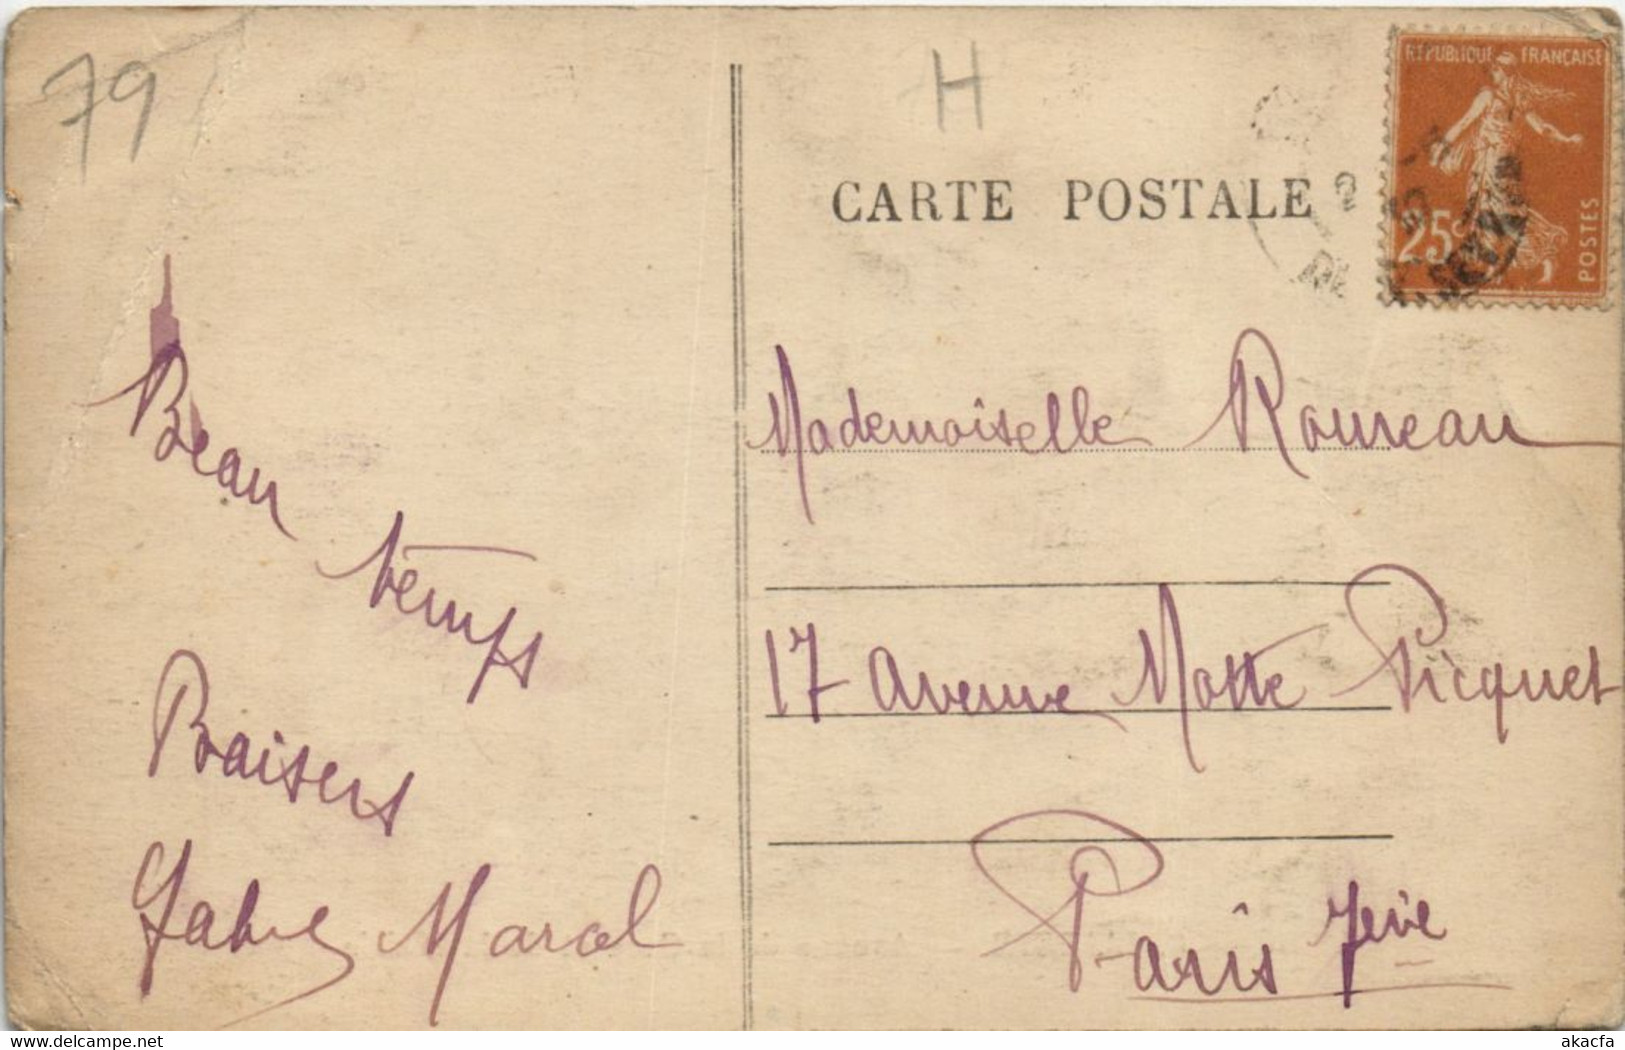 79
H
CARTE POSTALE
RÉPUBLIQUE FRANÇAISE
25c
POSTES
Beau temps
Baisers
Marcel
Mademoiselle Rousseau
17 Avenue Motte Picquet
Paris 7eme
delcampe.net
akacfa